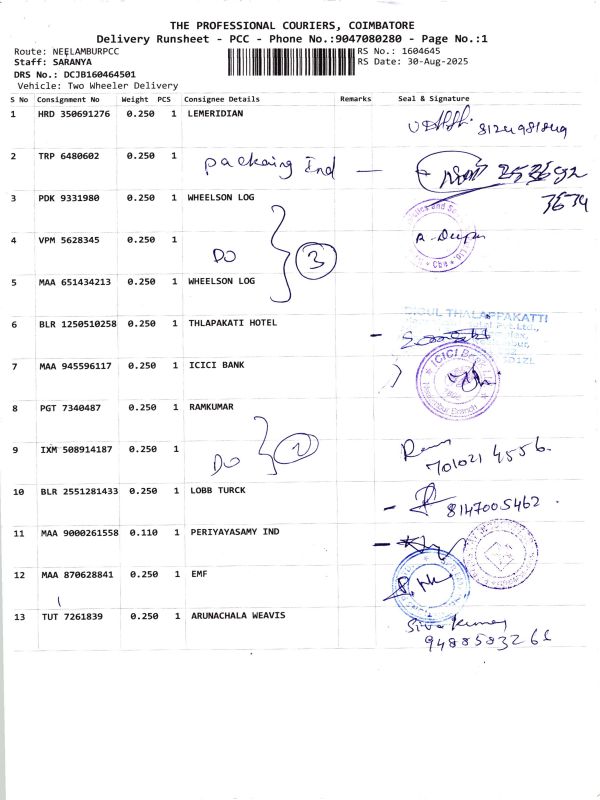 THE PROFESSIONAL COURIERS, COIMBATORE
Delivery Runsheet - PCC - Phone No.:9047080280 - Page No.:1
Route: NEELAMBURPCC RS No.: 1604645
Staff: SARANYA RS Date: 30-Aug-2025
DRS No.: DCJB160464501
Vehicle: Two Wheeler Delivery
S No Consignment No Weight PCS Consignee Details Remarks Seal & Signature
1 HRD 350691276 0.250 1 LEMERIDIAN
2 TRP 6480602 0.250 1 Packaing Ind —
3 PDK 9331980 0.250 1 WHEELSON LOG
3674
4 VPM 5628345 0.250 1 DO 3
5 MAA 651434213 0.250 1 WHEELSON LOG
6 BLR 1250510258 0.250 1 THLAPAKATI HOTEL
THALAPPAKATTI
7 MAA 945596117 0.250 1 ICICI BANK
ICICI
8 PGT 7340487 0.250 1 RAMKUMAR
9 IXM 508914187 0.250 1 DO 2
701021 4556.
10 BLR 2551281433 0.250 1 LOBB TURCK
8147005462
11 MAA 9000261558 0.110 1 PERIYAYASAMY IND
12 MAA 870628841 0.250 1 EMF
13 TUT 7261839 0.250 1 ARUNACHALA WEAVIS
Siva Kumar
9488583265